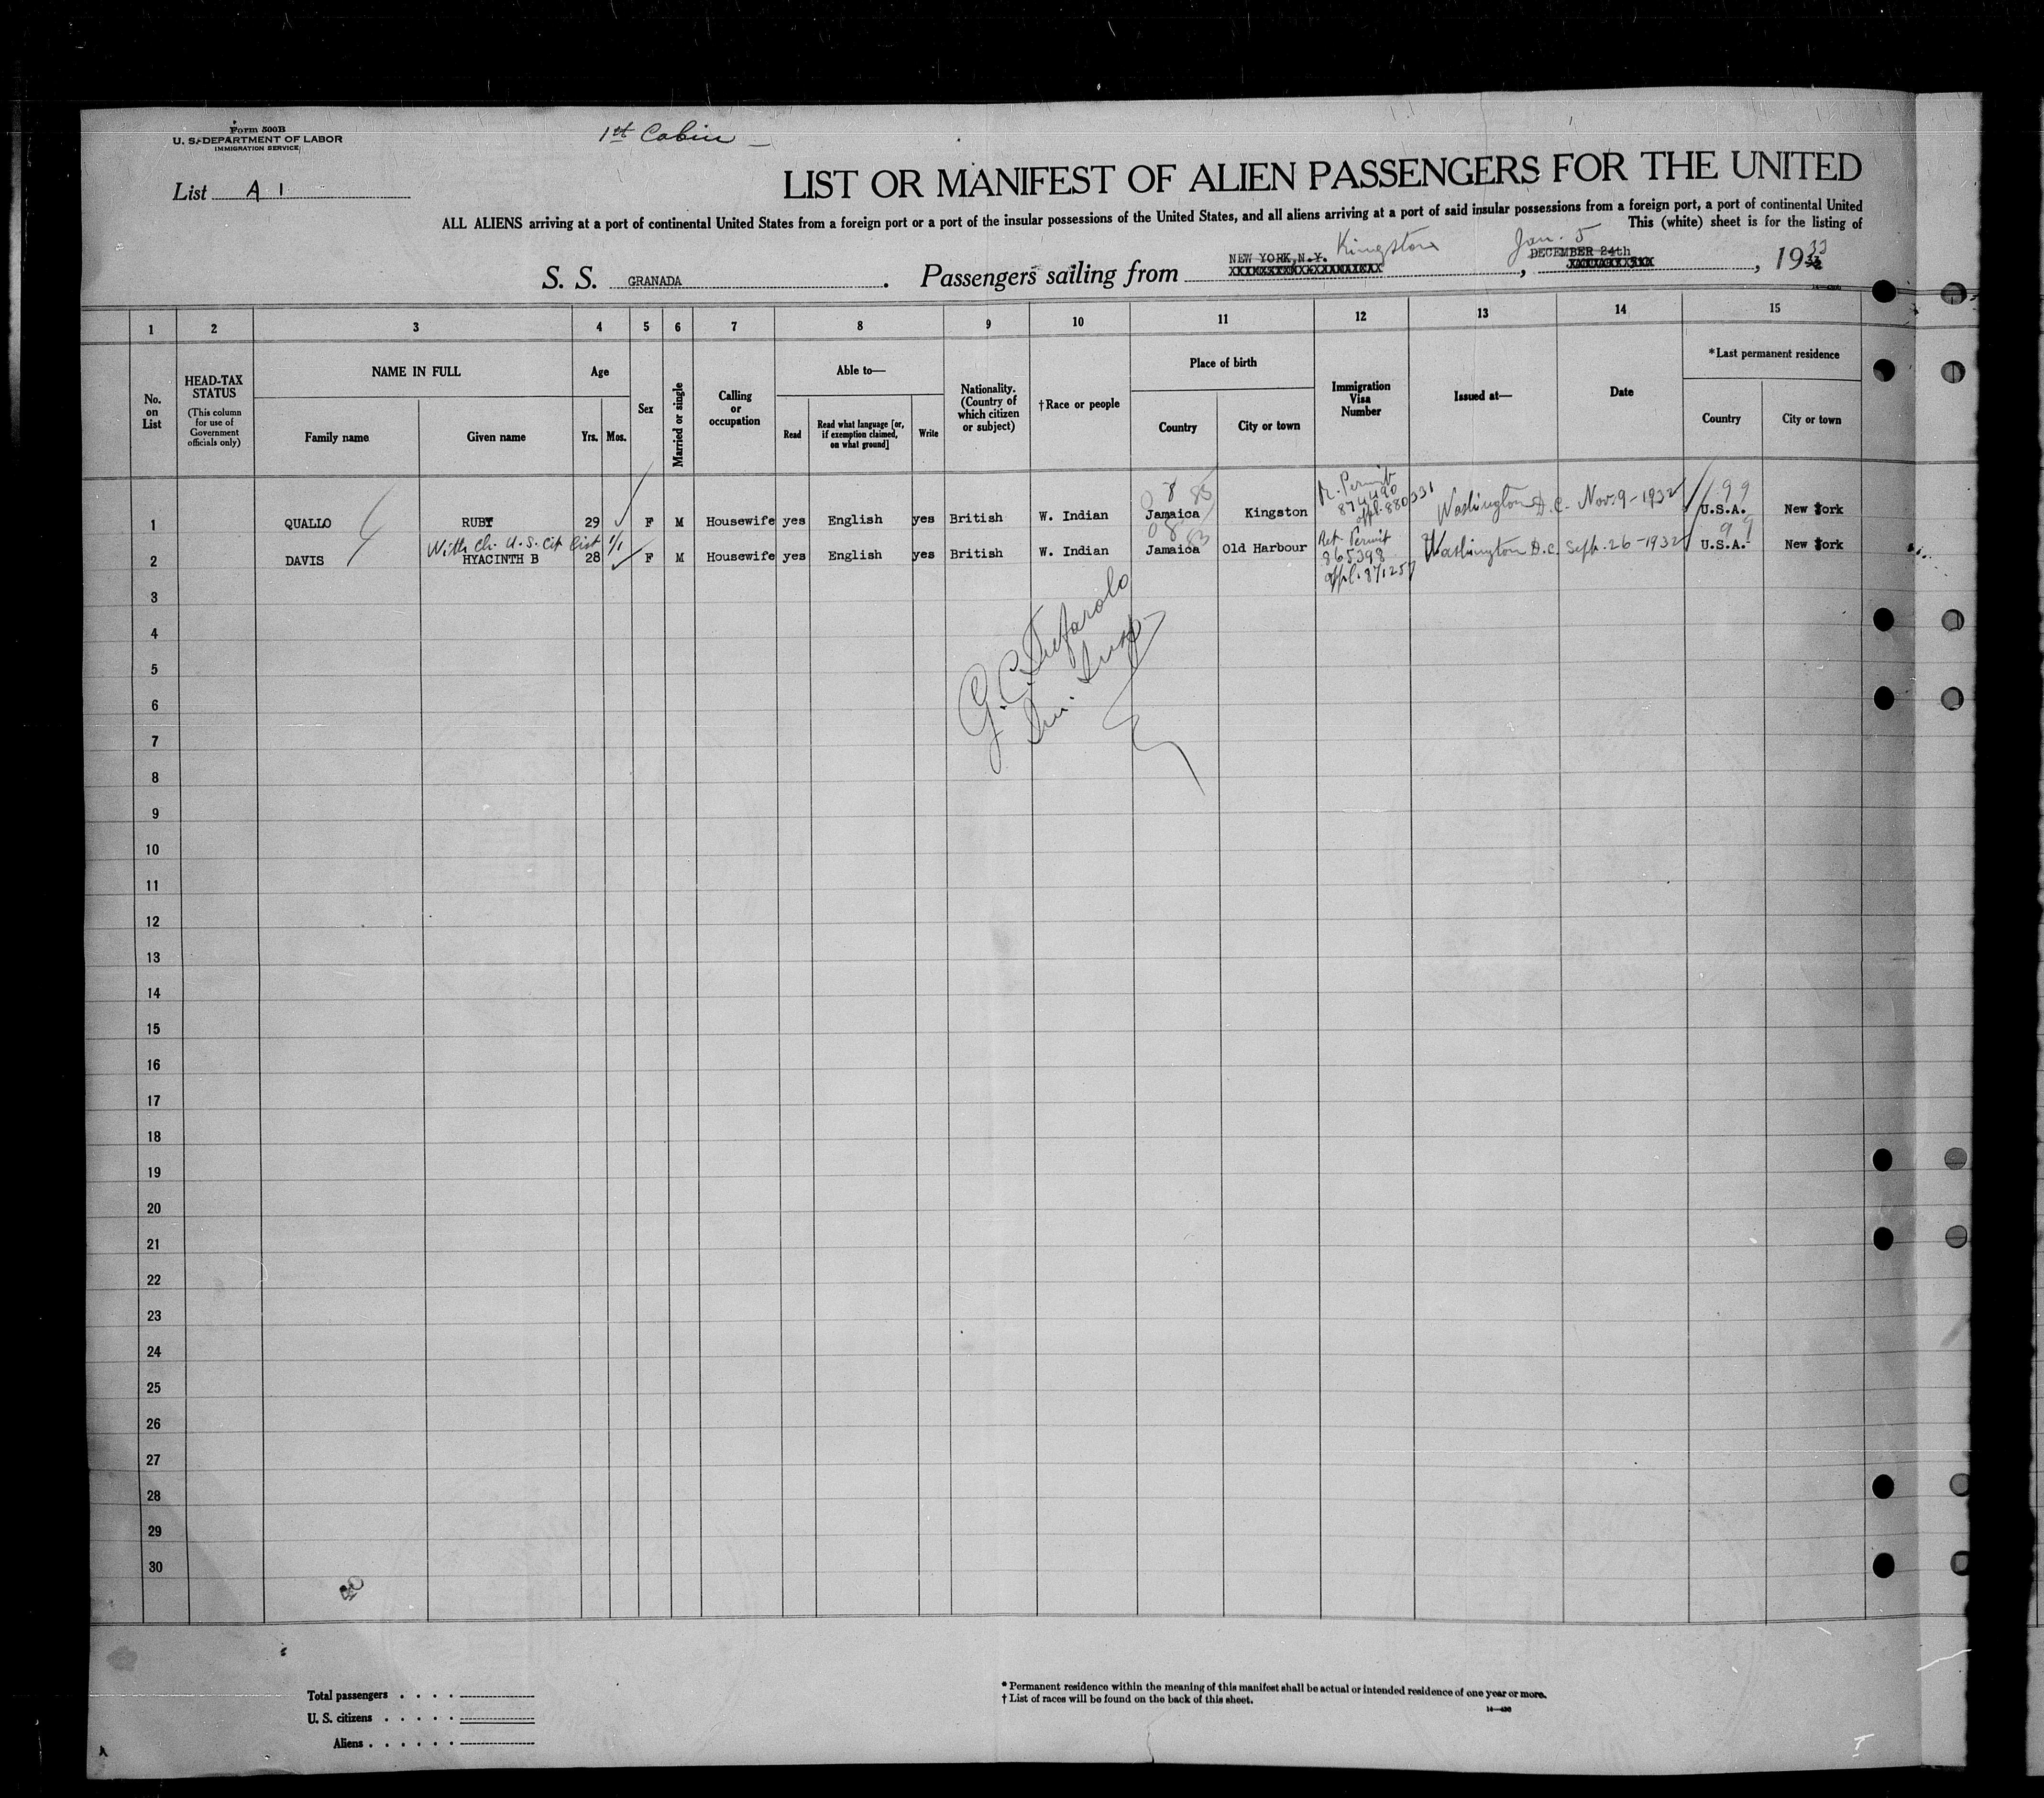 Form 500B
U. S. DEPARTMENT OF LABOR
IMMIGRATION SERVICE
1st Cabin
List A 1
LIST OR MANIFEST OF ALIEN PASSENGERS FOR THE UNITED
ALL ALIENS arriving at a port of continental United States from a foreign port or a port of the insular possessions of the United States, and all aliens arriving at a port of said insular possessions from a foreign port, a port of continental United
This (white) sheet is for the listing of
S. S. GRANADA. Passengers sailing from NEW YORK, N.Y. Kingston, DECEMBER 24th Jan. 5, 1933
1 2 3 4 5 6 7 8 9 10 11 12 13 14 15
No. on List
HEAD-TAX STATUS
(This column for use of Government officials only)
NAME IN FULL
Family name
Given name
Age
Yrs. Mos.
Sex
Married or single
Calling or occupation
Able to—
Read
Read what language [or, if exemption claimed, on what ground]
Write
Nationality. (Country of which citizen or subject)
†Race or people
Place of birth
Country
City or town
Immigration Visa Number
Issued at—
Date
*Last permanent residence
Country
City or town
8 83
R. Permit
874490
appl. 880331
99
1 QUALLO RUBY 29 F M Housewife yes English yes British W. Indian Jamaica Kingston Washington D.C. Nov. 9-1932 U.S.A. New York
With Ch. U.S. Cit list 1/1
0 8 83
Ret. Permit
865398
appl. 871257
99
2 DAVIS HYACINTH B 28 F M Housewife yes English yes British W. Indian Jamaica Old Harbour Washington D.C. Sept. 26-1932 U.S.A. New York
3
4
5
6
7
8
9
10
11
12
13
14
15
16
17
18
19
20
21
22
23
24
25
26
27
28
29
30
Total passengers . . . .
U. S. citizens . . . . .
Aliens . . . . . .
* Permanent residence within the meaning of this manifest shall be actual or intended residence of one year or more.
† List of races will be found on the back of this sheet.